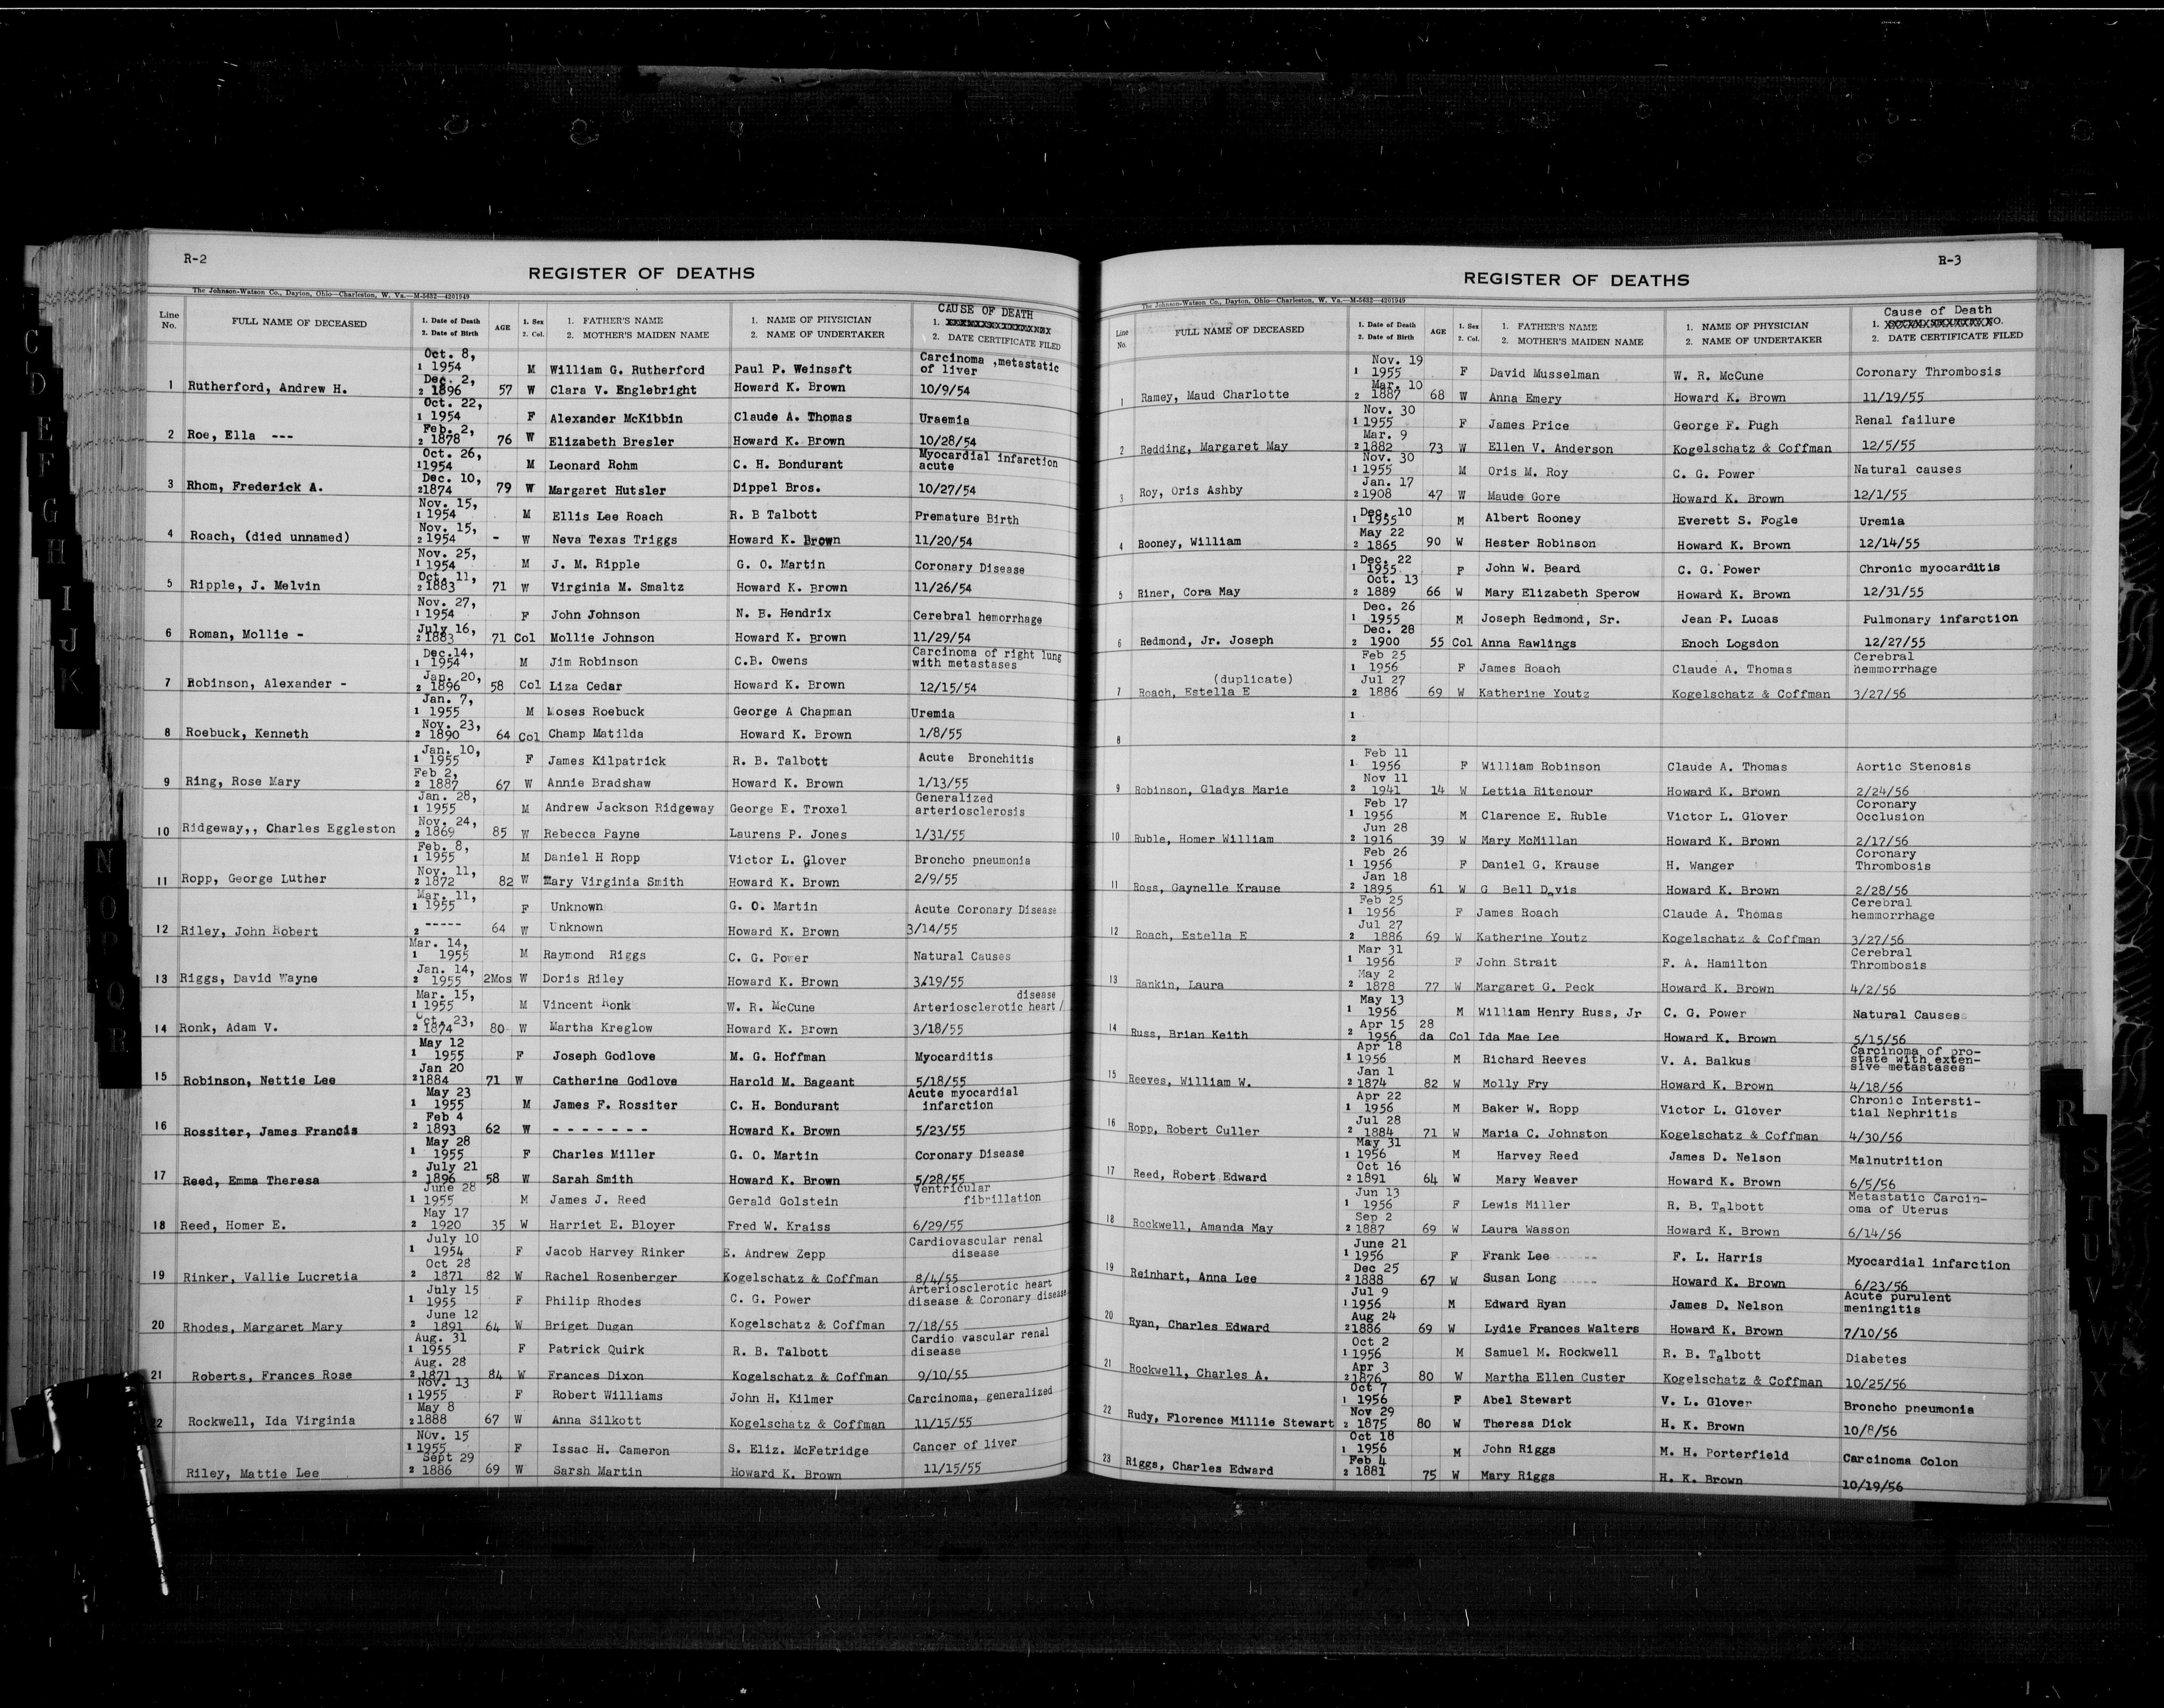 R-2
REGISTER OF DEATHS
The Johnson-Watson Co., Dayton, Ohio—Charleston, W. Va.—M-5632—4201949
Line No. FULL NAME OF DECEASED 1. Date of Death 2. Date of Birth AGE 1. Sex 2. Col. 1. FATHER'S NAME 2. MOTHER'S MAIDEN NAME 1. NAME OF PHYSICIAN 2. NAME OF UNDERTAKER CAUSE OF DEATH 1. 2. DATE CERTIFICATE FILED
Oct. 8, 1 1954 M William G. Rutherford Paul P. Weinsaft Carcinoma ,metastatic of liver
1 Rutherford, Andrew H. Dec. 2, 2 1896 57 W Clara V. Englebright Howard K. Brown 10/9/54
Oct. 22, 1 1954 F Alexander McKibbin Claude A. Thomas Uraemia
2 Roe, Ella --- Feb. 2, 2 1878 76 W Elizabeth Bresler Howard K. Brown 10/28/54
Oct. 26, 1 1954 M Leonard Rohm C. H. Bondurant Myocardial infarction acute
3 Rhom, Frederick A. Dec. 10, 2 1874 79 W Margaret Hutsler Dippel Bros. 10/27/54
Nov. 15, 1 1954 M Ellis Lee Roach R. B Talbott Premature Birth
4 Roach, (died unnamed) Nov. 15, 2 1954 - W Neva Texas Triggs Howard K. Brown 11/20/54
Nov. 25, 1 1954 M J. M. Ripple G. O. Martin Coronary Disease
5 Ripple, J. Melvin Oct. 11, 2 1883 71 W Virginia M. Smaltz Howard K. Brown 11/26/54
Nov. 27, 1 1954 F John Johnson N. B. Hendrix Cerebral hemorrhage
6 Roman, Mollie - July 16, 2 1883 71 Col Mollie Johnson Howard K. Brown 11/29/54
Dec.14, 1 1954 M Jim Robinson C.B. Owens Carcinoma of right lung with metastases
7 Robinson, Alexander - Jan. 20, 2 1896 58 Col Liza Cedar Howard K. Brown 12/15/54
Jan. 7, 1 1955 M Moses Roebuck George A Chapman Uremia
8 Roebuck, Kenneth Nov. 23, 2 1890 64 Col Champ Matilda Howard K. Brown 1/8/55
Jan. 10, 1 1955 F James Kilpatrick R. B. Talbott Acute Bronchitis
9 Ring, Rose Mary Feb 2, 2 1887 67 W Annie Bradshaw Howard K. Brown 1/13/55
Jan. 28, 1 1955 M Andrew Jackson Ridgeway George E. Troxel Generalized arteriosclerosis
10 Ridgeway,, Charles Eggleston Nov. 24, 2 1869 85 W Rebecca Payne Laurens P. Jones 1/31/55
Feb. 8, 1 1955 M Daniel H Ropp Victor L. Glover Broncho pneumonia
11 Ropp, George Luther Nov. 11, 2 1872 82 W Mary Virginia Smith Howard K. Brown 2/9/55
Mar. 11, 1 1955 F Unknown G. O. Martin Acute Coronary Disease
12 Riley, John Robert 2 ----- 64 W Unknown Howard K. Brown 3/14/55
Mar. 14, 1 1955 M Raymond Riggs C. G. Power Natural Causes
13 Riggs, David Wayne Jan. 14, 2 1955 2Mos W Doris Riley Howard K. Brown 3/19/55
Mar. 15, 1 1955 M Vincent Ronk W. R. McCune Arteriosclerotic heart / disease
14 Ronk, Adam V. Oct. 23, 2 1874 80 W Martha Kreglow Howard K. Brown 3/18/55
May 12 1 1955 F Joseph Godlove M. G. Hoffman Myocarditis
15 Robinson, Nettie Lee Jan 20 2 1884 71 W Catherine Godlove Harold M. Bageant 5/18/55
May 23 1 1955 M James F. Rossiter C. H. Bondurant Acute myocardial infarction
16 Rossiter, James Francis Feb 4 2 1893 62 W - - - - - - - Howard K. Brown 5/23/55
May 28 1 1955 F Charles Miller G. O. Martin Coronary Disease
17 Reed, Emma Theresa July 21 2 1896 58 W Sarah Smith Howard K. Brown 5/28/55
June 28 1 1955 M James J. Reed Gerald Golstein Ventricular fibrillation
18 Reed, Homer E. May 17 2 1920 35 W Harriet E. Bloyer Fred W. Kraiss 6/29/55
July 10 1 1954 F Jacob Harvey Rinker E. Andrew Zepp Cardiovascular renal disease
19 Rinker, Vallie Lucretia Oct 28 2 1871 82 W Rachel Rosenberger Kogelschatz & Coffman 8/4/55
July 15 1 1955 F Philip Rhodes C. G. Power Arteriosclerotic heart disease & Coronary disease
20 Rhodes, Margaret Mary June 12 2 1891 64 W Briget Dugan Kogelschatz & Coffman 7/18/55
Aug. 31 1 1955 F Patrick Quirk R. B. Talbott Cardio vascular renal disease
21 Roberts, Frances Rose Aug. 28 2 1871 84 W Frances Dixon Kogelschatz & Coffman 9/10/55
Nov. 13 1 1955 F Robert Williams John H. Kilmer Carcinoma, generalized
22 Rockwell, Ida Virginia May 8 2 1888 67 W Anna Silkott Kogelschatz & Coffman 11/15/55
Nov. 15 1 1955 F Issac H. Cameron S. Eliz. McFetridge Cancer of liver
Riley, Mattie Lee Sept 29 2 1886 69 W Sarsh Martin Howard K. Brown 11/15/55
R-3
REGISTER OF DEATHS
The Johnson-Watson Co., Dayton, Ohio—Charleston, W. Va.—M-5632—4201949
Line No. FULL NAME OF DECEASED 1. Date of Death 2. Date of Birth AGE 1. Sex 2. Col. 1. FATHER'S NAME 2. MOTHER'S MAIDEN NAME 1. NAME OF PHYSICIAN 2. NAME OF UNDERTAKER Cause of Death 1. NO. 2. DATE CERTIFICATE FILED
Nov. 19 1 1955 F David Musselman W. R. McCune Coronary Thrombosis
1 Ramey, Maud Charlotte Mar. 10 2 1887 68 W Anna Emery Howard K. Brown 11/19/55
Nov. 30 1 1955 F James Price George F. Pugh Renal failure
2 Redding, Margaret May Mar. 9 2 1882 73 W Ellen V. Anderson Kogelschatz & Coffman 12/5/55
Nov. 30 1 1955 M Oris M. Roy C. G. Power Natural causes
3 Roy, Oris Ashby Jan. 17 2 1908 47 W Maude Gore Howard K. Brown 12/1/55
Dec. 10 1 1955 M Albert Rooney Everett S. Fogle Uremia
4 Rooney, William May 22 2 1865 90 W Hester Robinson Howard K. Brown 12/14/55
Dec. 22 1 1955 F John W. Beard C. G. Power Chronic myocarditis
5 Riner, Cora May Oct. 13 2 1889 66 W Mary Elizabeth Sperow Howard K. Brown 12/31/55
Dec. 26 1 1955 M Joseph Redmond, Sr. Jean P. Lucas Pulmonary infarction
6 Redmond, Jr. Joseph Dec. 28 2 1900 55 Col Anna Rawlings Enoch Logsdon 12/27/55
Feb 25 1 1956 F James Roach Claude A. Thomas Cerebral hemmorrhage
(duplicate)
7 Roach, Estella E Jul 27 2 1886 69 W Katherine Youtz Kogelschatz & Coffman 3/27/56
1
8 2
Feb 11 1 1956 F William Robinson Claude A. Thomas Aortic Stenosis
9 Robinson, Gladys Marie Nov 11 2 1941 14 W Lettia Ritenour Howard K. Brown 2/24/56
Feb 17 1 1956 M Clarence E. Ruble Victor L. Glover Coronary Occlusion
10 Ruble, Homer William Jun 28 2 1916 39 W Mary McMillan Howard K. Brown 2/17/56
Feb 26 1 1956 F Daniel G. Krause H. Wanger Coronary Thrombosis
11 Ross, Gaynelle Krause Jan 18 2 1895 61 W G Bell Davis Howard K. Brown 2/28/56
Feb 25 1 1956 F James Roach Claude A. Thomas Cerebral hemmorrhage
12 Roach, Estella E Jul 27 2 1886 69 W Katherine Youtz Kogelschatz & Coffman 3/27/56
Mar 31 1 1956 F John Strait F. A. Hamilton Cerebral Thrombosis
13 Rankin, Laura May 2 2 1878 77 W Margaret G. Peck Howard K. Brown 4/2/56
May 13 1 1956 M William Henry Russ, Jr C. G. Power Natural Causes
14 Russ, Brian Keith Apr 15 2 1956 28 da Col Ida Mae Lee Howard K. Brown 5/15/56
Apr 18 1 1956 M Richard Reeves V. A. Balkus Carcinoma of pro- state with exten- sive metastases
15 Reeves, William W. Jan 1 2 1874 82 W Molly Fry Howard K. Brown 4/18/56
Apr 22 1 1956 M Baker W. Ropp Victor L. Glover Chronic Intersti- tial Nephritis
16 Ropp, Robert Culler Jul 28 2 1884 71 W Maria C. Johnston Kogelschatz & Coffman 4/30/56
May 31 1 1956 M Harvey Reed James D. Nelson Malnutrition
17 Reed, Robert Edward Oct 16 2 1891 64 W Mary Weaver Howard K. Brown 6/5/56
Jun 13 1 1956 F Lewis Miller R. B. Talbott Metastatic Carcin- oma of Uterus
18 Rockwell, Amanda May Sep 2 2 1887 69 W Laura Wasson Howard K. Brown 6/14/56
June 21 1 1956 F Frank Lee F. L. Harris Myocardial infarction
19 Reinhart, Anna Lee Dec 25 2 1888 67 W Susan Long Howard K. Brown 6/23/56
Jul 9 1 1956 M Edward Ryan James D. Nelson Acute purulent meningitis
20 Ryan, Charles Edward Aug 24 2 1886 69 W Lydie Frances Walters Howard K. Brown 7/10/56
Oct 2 1 1956 M Samuel M. Rockwell R. B. Talbott Diabetes
21 Rockwell, Charles A. Apr 3 2 1876 80 W Martha Ellen Custer Kogelschatz & Coffman 10/25/56
Oct 7 1 1956 F Abel Stewart V. L. Glover Broncho pneumonia
22 Rudy, Florence Millie Stewart Nov 29 2 1875 80 W Theresa Dick H. K. Brown 10/8/56
Oct 18 1 1956 M John Riggs M. H. Porterfield Carcinoma Colon
23 Riggs, Charles Edward Feb 4 2 1881 75 W Mary Riggs H. K. Brown 10/19/56
C
D
E
F
G
H
I
J
K
N
O
P
Q
R
R
S
T
U
V
W
X
Y